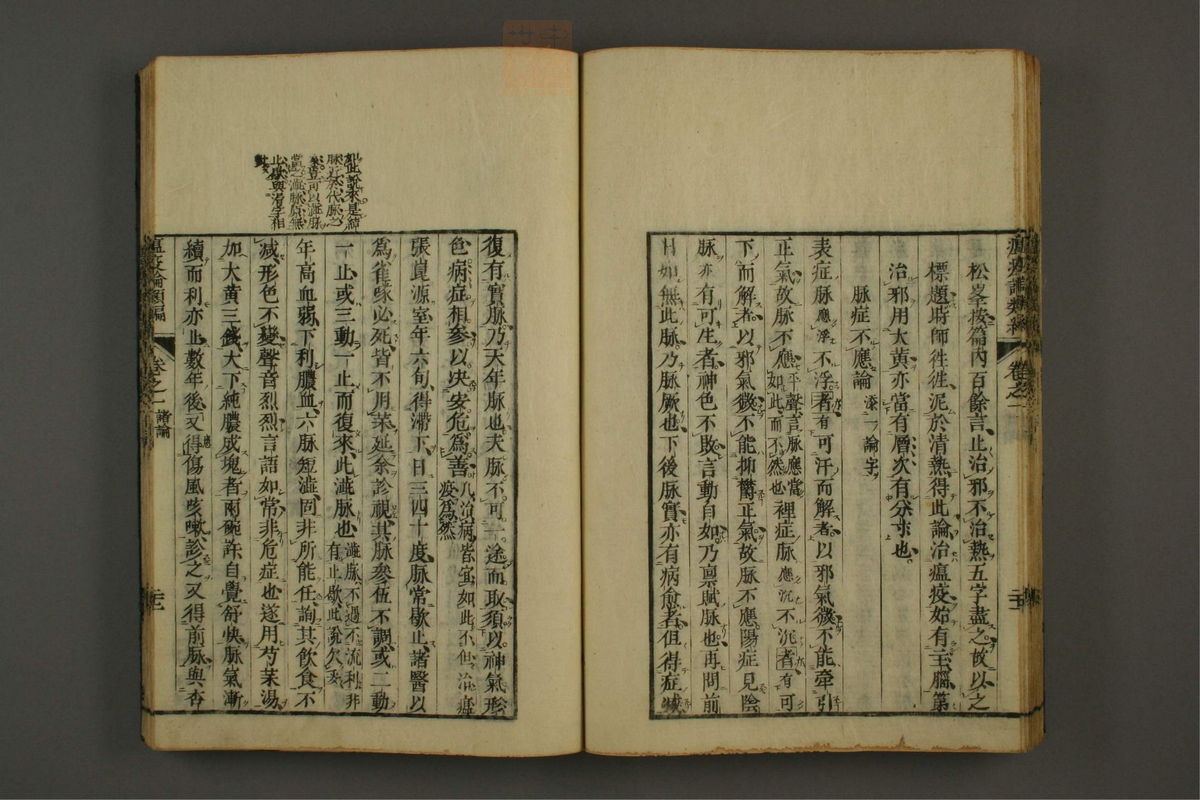 松峯按篇內百餘言止治邪不治熱五字盡之故以之
標題時師徃徃泥於清熱得此論治瘟疫始有主腦第
治邪用大黄亦當有層次有分寸也
脉症不應論 添一論字
表症脉應浮不浮者有可汗而解者以邪氣微不能牽引
正氣故脉不應平聲言脉應當如此而不然也裡症脉應沉不沉者有可
下而解者以邪氣微不能抑鬱正氣故脉不應陽症見陰
脉亦有可生者神色不敗言動自如乃禀賦脉也再問前
日如無此脉乃脉厥也下後脉實亦有病愈者但得症減
復有實脉乃天年脉也夫脉不可一途而取須以神氣形
色病症相參以决安危爲善凡治病皆宜如此不但治瘟疫爲然
張崑源室年六旬得滯下日三四十度脉常歇止諸醫以
爲雀啄必死皆不用藥延余診視其脉參伍不調或二動
一止或三動一止而復來此澁脉也澁脉不過不流利非有止歇此說欠妥
年高血弱下利膿血六脉短澁固非所能任詢其飲食不
减形色不變聲音烈烈言語如常非危症也遂用芍藥湯
加大黄三錢大下純膿成塊者兩碗許自覺舒快脉氣漸
續而利亦止數年後又得傷風咳嗽診之又得前脉與杏
脉近於代脉之
當澁脉原無
止歇與滑字相
對
瘟疫論類編
卷之一
諸論